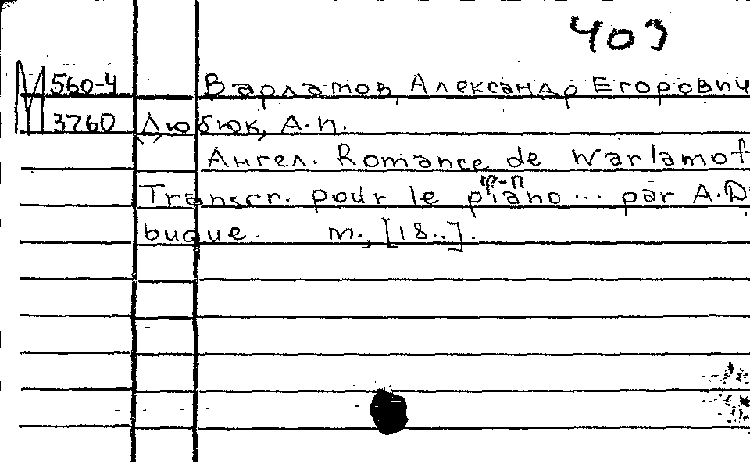 403
М 560-4 Варламов, Александр Егорович
3760 Дюбюк, А.И.
Ангел. Romance de Warlamof
Transcr. pour le piano... par A.D
buque. М., [18..].